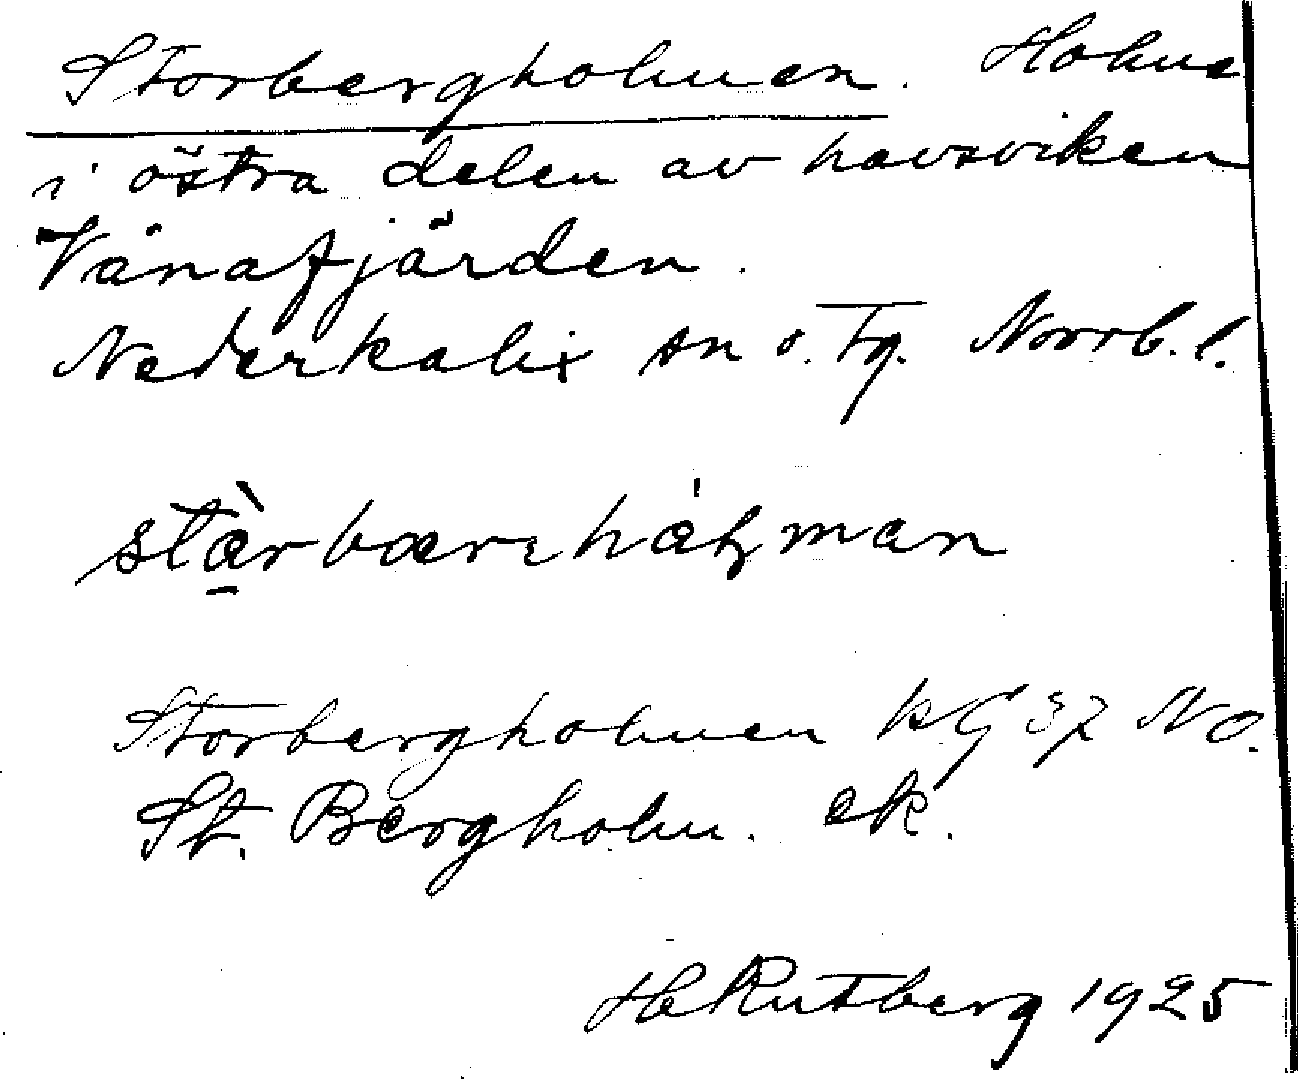 Storbergholmen. Holme
i östra delen av havsviken
Vånafjärden.
Nederkalix sn o. Tg. Norrb. l.
Storbergholmen kG 37 NO.
St. Bergholm. ek.
H Rutberg 1925